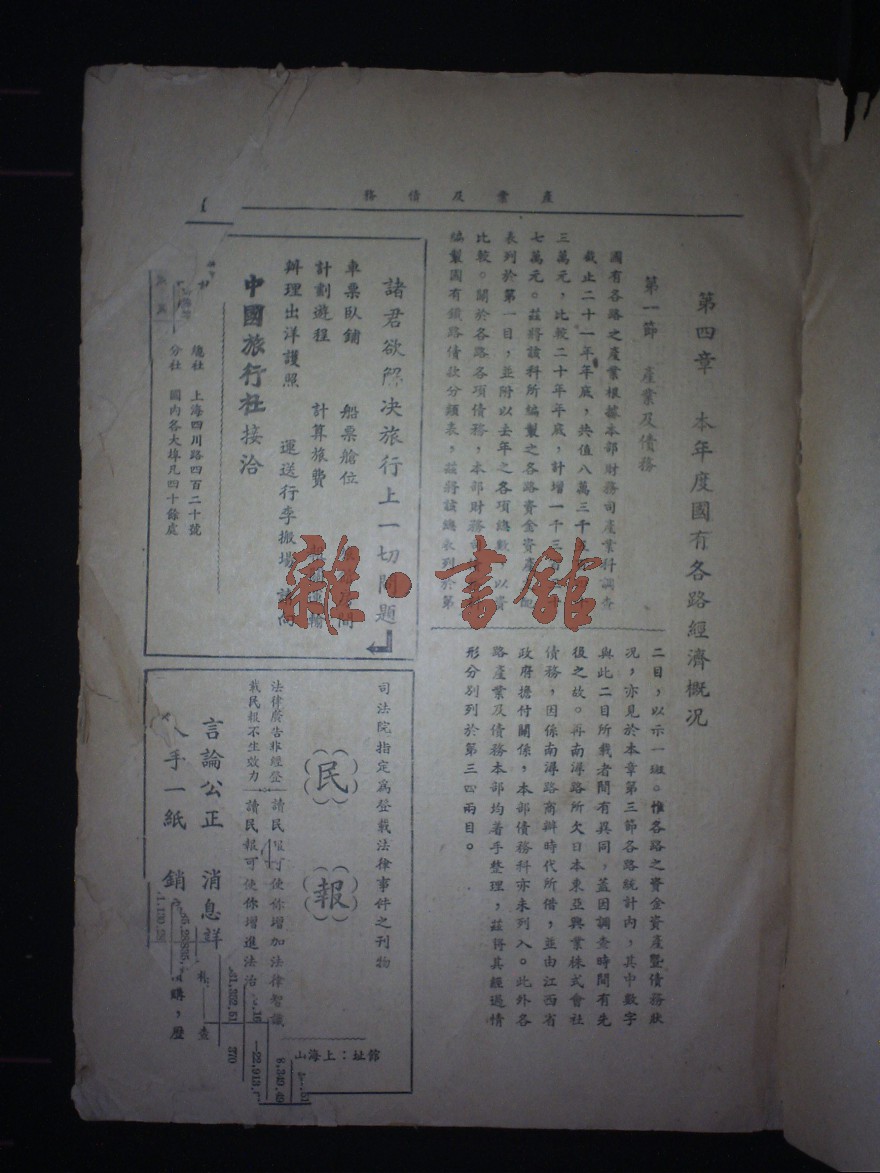 產業及債務
1
第四章 本年度國有各路經濟概况
第一節 產業及債務
國有各路之產業根據本部財務司產業科調查
截止二十一年年底，共值八萬三千
三萬元，比較二十年年底，計增一千三
七萬元。茲將該科所編製之各路資金資產
表列於第一目，並附以去年之各項總數，以資
比較。關於各路各項債務，本部財務
編製國有鐵路債款分類表，茲將該總表列於第
二目，以示一斑。惟各路之資金資產曁債務狀
况，亦見於本章第三節各路統計內，其中數字
與此二目所載者間有異同，蓋因調查時間有先
後之故。再南潯路所欠日本東亞興業株式會社
債務，因係南潯路商辦時代所借，並由江西省
政府擔付關係，本部債務科亦未列入。此外各
路產業及債務本部均著手整理，茲得其經過情
形分別列於第三四兩目。
諸君欲解决旅行上一切問題
車票臥鋪 船票艙位
計劃遊程 計算旅費 運輸
辦理出洋護照 運送行李搬場 請向
中國旅行社接洽
總社 上海四川路四百二十號
分社 國內各大埠凡四十餘處
司法院指定爲登載法律事件之刊物
民報
法律廣告非經登
載民報不生效力
請民報可使你增加法律智識
請民報可使你增進法治
言論公正 消息詳
人手一紙 銷
購，歷
查
館址：上海山
8,340,49
270
雜·書館